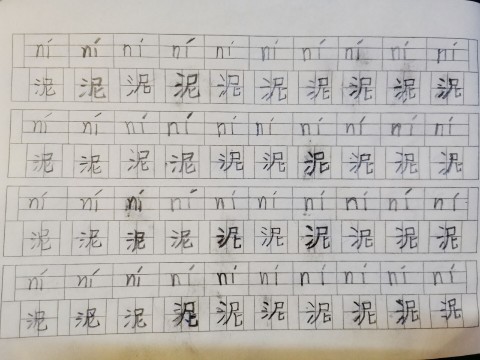 ní ní ní ní ní ní ní ní ní ní
泥 泥 泥 泥 泥 泥 泥 泥 泥 泥
ní ní ní ní ní ní ní ní ní ní
泥 泥 泥 泥 泥 泥 泥 泥 泥 泥
ní ní ní ní ní ní ní ní ní ní
泥 泥 泥 泥 泥 泥 泥 泥 泥 泥
ní ní ní ní ní ní ní ní ní ní
泥 泥 泥 泥 泥 泥 泥 泥 泥 泥